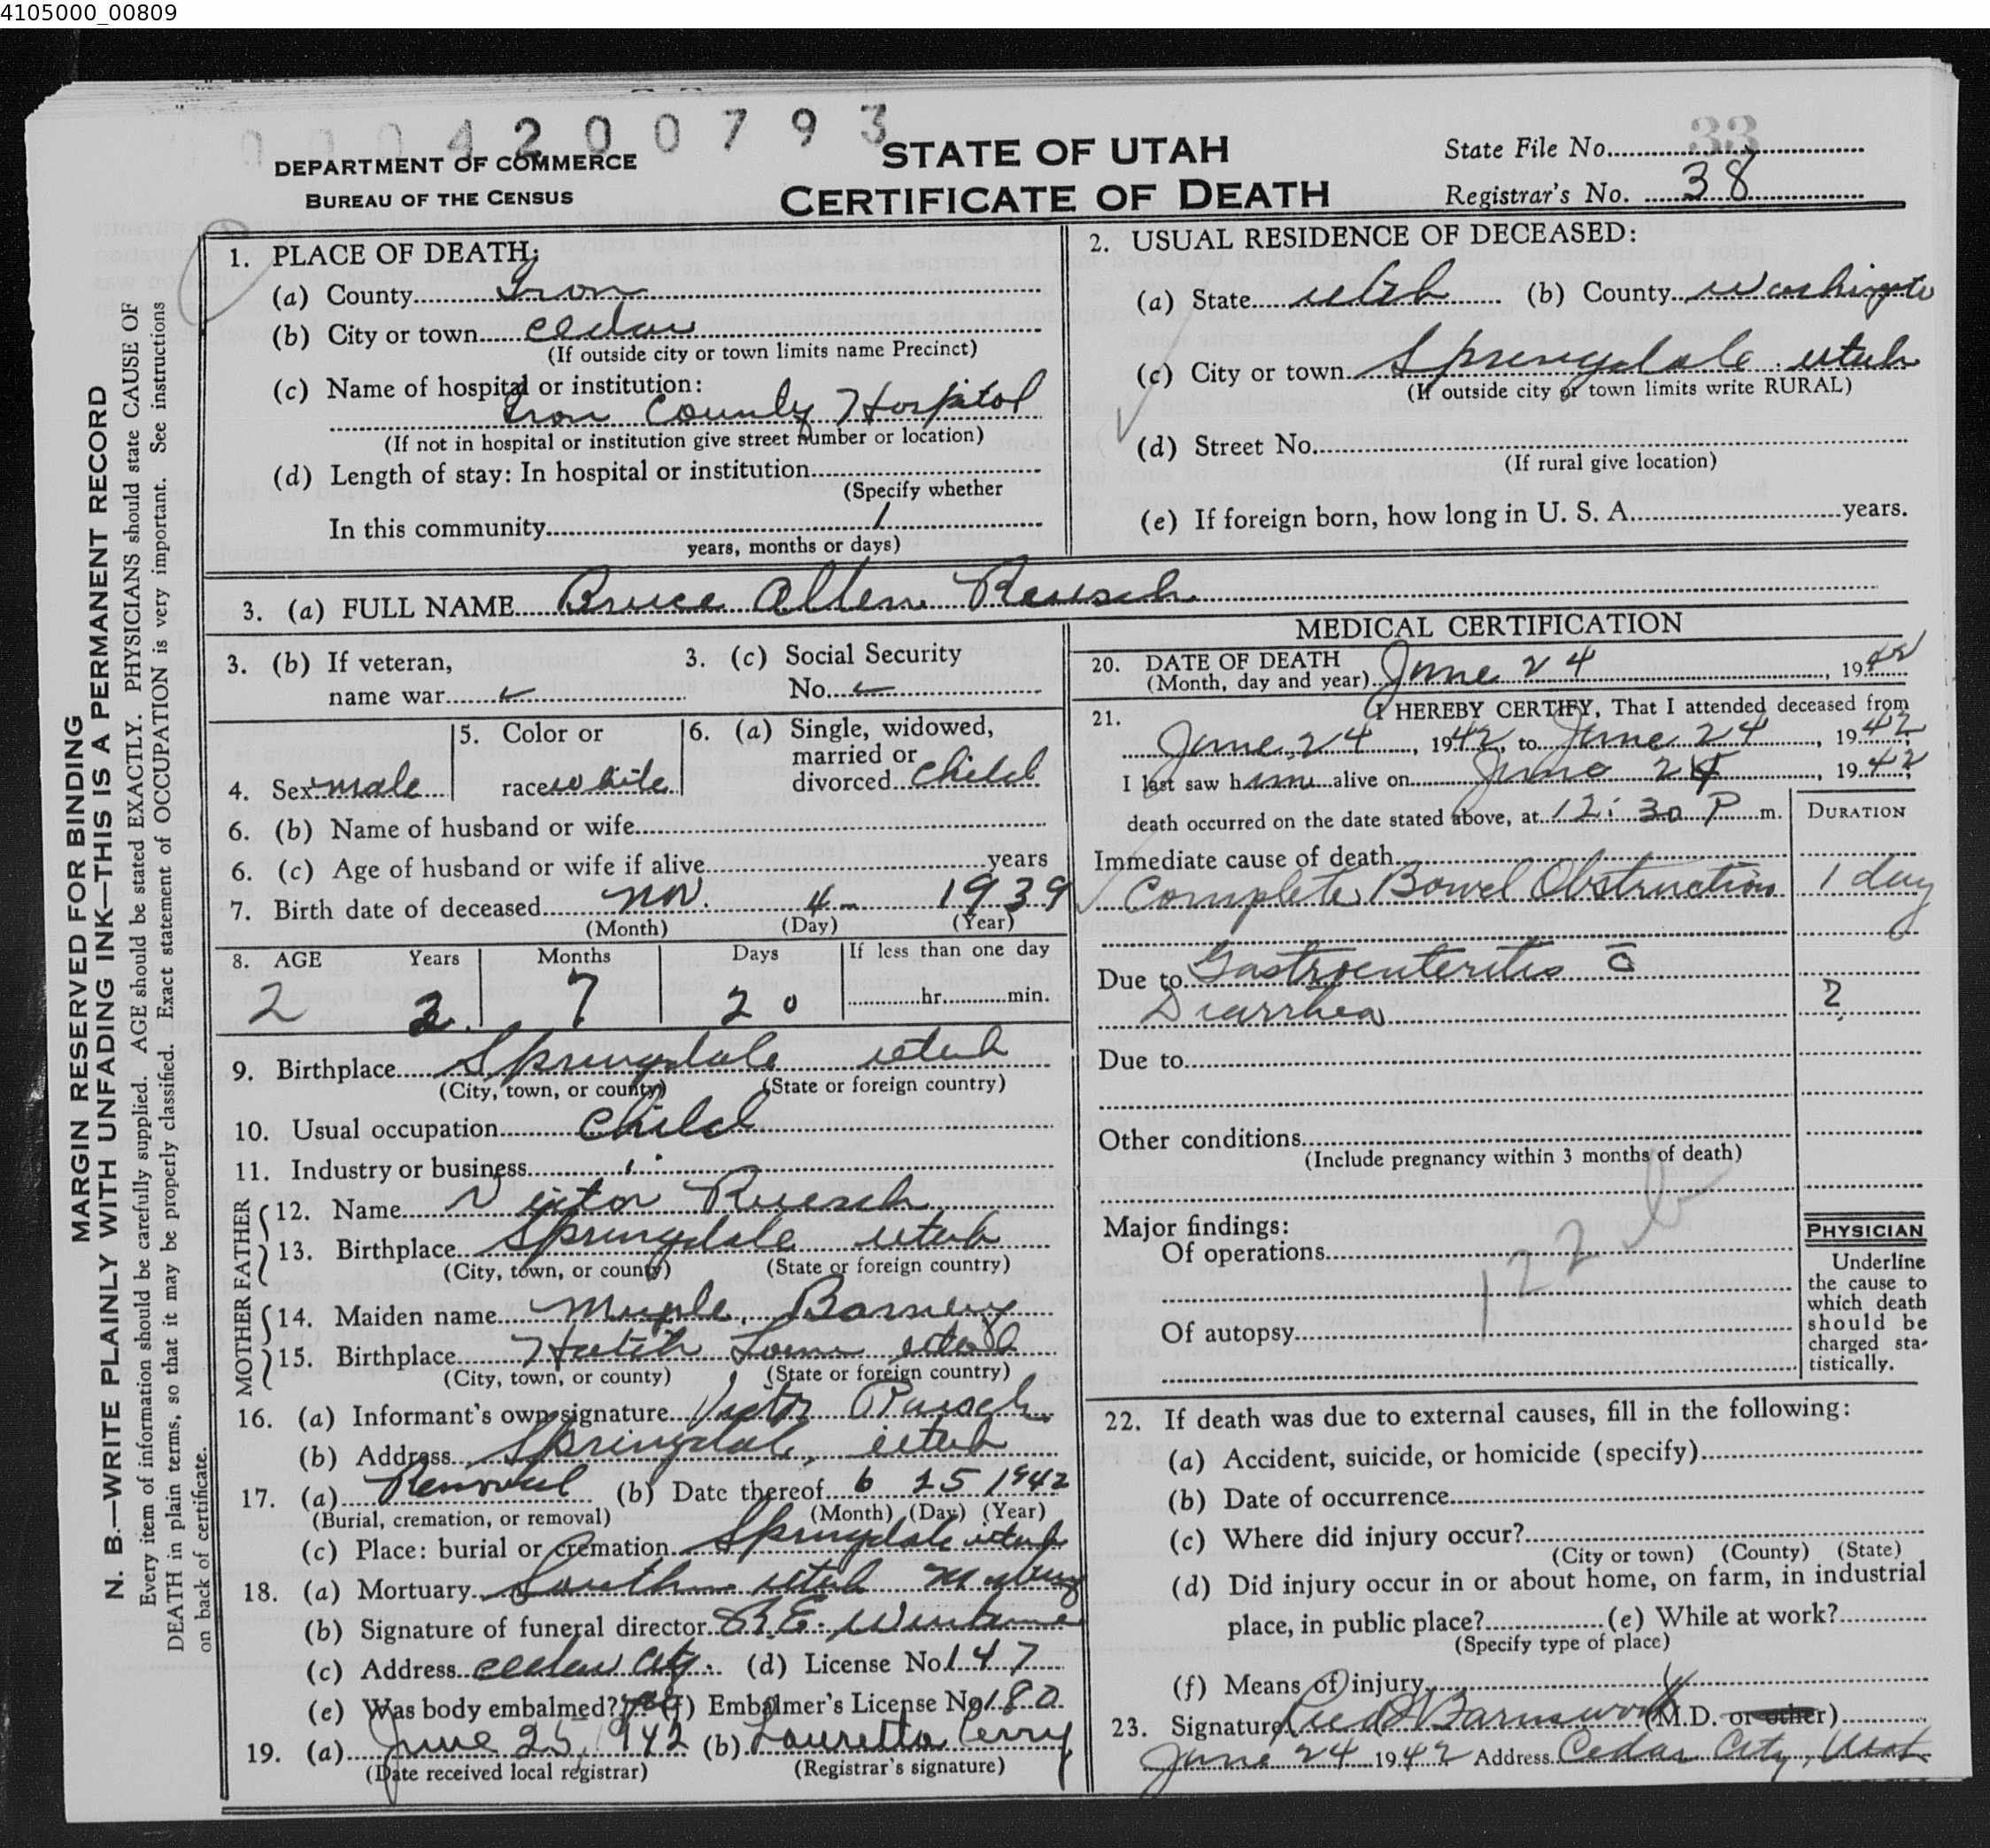 4105000_00809
0004200793
DEPARTMENT OF COMMERCE
BUREAU OF THE CENSUS
STATE OF UTAH
CERTIFICATE OF DEATH
State File No. 33
Registrar's No. 38
MARGIN RESERVED FOR BINDING
N. B.—WRITE PLAINLY WITH UNFADING INK—THIS IS A PERMANENT RECORD
Every item of information should be carefully supplied. AGE should be stated EXACTLY. PHYSICIANS should state CAUSE OF
DEATH in plain terms, so that it may be properly classified. Exact statement of OCCUPATION is very important. See instructions
on back of certificate.
1. PLACE OF DEATH:
(a) County Iron
(b) City or town Cedar
(If outside city or town limits name Precinct)
(c) Name of hospital or institution:
Iron County Hospital
(If not in hospital or institution give street number or location)
(d) Length of stay: In hospital or institution
(Specify whether
In this community 1
years, months or days)
2. USUAL RESIDENCE OF DECEASED:
(a) State Utah (b) County Washington
(c) City or town Springdale Utah
(If outside city or town limits write RURAL)
(d) Street No.
(If rural give location)
(e) If foreign born, how long in U. S. A. years.
3. (a) FULL NAME Bruce Allen Ruesch
3. (b) If veteran,
name war
3. (c) Social Security
No.
4. Sex male
5. Color or
race white
6. (a) Single, widowed,
married or
divorced child
6. (b) Name of husband or wife
6. (c) Age of husband or wife if alive years
7. Birth date of deceased Nov. 4 - 1939
(Month) (Day) (Year)
8. AGE Years Months Days If less than one day
2 2 7 20 hr. min.
9. Birthplace Springdale Utah
(City, town, or county) (State or foreign country)
10. Usual occupation child
11. Industry or business
FATHER
12. Name Victor Ruesch
13. Birthplace Springdale Utah
(City, town, or county) (State or foreign country)
MOTHER
14. Maiden name Barney
15. Birthplace Hatch Utah
(City, town, or county) (State or foreign country)
16. (a) Informant's own signature Victor Ruesch
(b) Address Springdale, Utah
17. (a) Removal (b) Date thereof 6 25 1942
(Burial, cremation, or removal) (Month) (Day) (Year)
(c) Place: burial or cremation Springdale Utah
18. (a) Mortuary Southern Utah Mortuary
(b) Signature of funeral director
(c) Address Cedar City. (d) License No. 147
(e) Was body embalmed? yes (f) Embalmer's License No. 180
19. (a) June 25, 1942 (b) Lauretta Perry
(Date received local registrar) (Registrar's signature)
MEDICAL CERTIFICATION
20. DATE OF DEATH
(Month, day and year) June 24, 1942
21. I HEREBY CERTIFY, That I attended deceased from
June 24, 1942, to June 24, 1942
I last saw him alive on June 24, 1942,
death occurred on the date stated above, at 12:30 P m.
DURATION
Immediate cause of death
Complete Bowel Obstruction 1 day
Due to Gastroenteritis c̄
Diarrhea ?
Due to
Other conditions
(Include pregnancy within 3 months of death)
Major findings:
Of operations
122 b
Of autopsy
PHYSICIAN
Underline
the cause to
which death
should be
charged sta-
tistically.
22. If death was due to external causes, fill in the following:
(a) Accident, suicide, or homicide (specify)
(b) Date of occurrence
(c) Where did injury occur?
(City or town) (County) (State)
(d) Did injury occur in or about home, on farm, in industrial
place, in public place? (e) While at work?
(Specify type of place)
(f) Means of injury
23. Signature Reed Farnsworth (M.D. or other)
June 24 1942 Address Cedar City, Utah